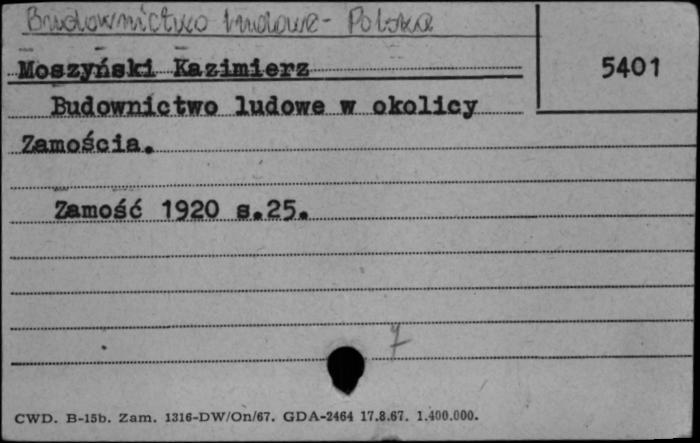 Budownictwo ludowe - Polska
Moszyński Kazimierz
5401
Budownictwo ludowe w okolicy
Zamościa.
Zamość 1920 s.25.
7
CWD. B-15b. Zam. 1316-DW/On/67. GDA-2464 17.8.67. 1.400.000.